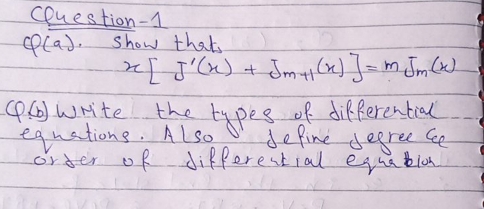 Question-1
Q(a). Show that,
x[ J'(x) + J_{m+1}(x) ] = m J_m(x)
Q.(b) Write the types of differential
equations. Also define degree &
order of differential equation